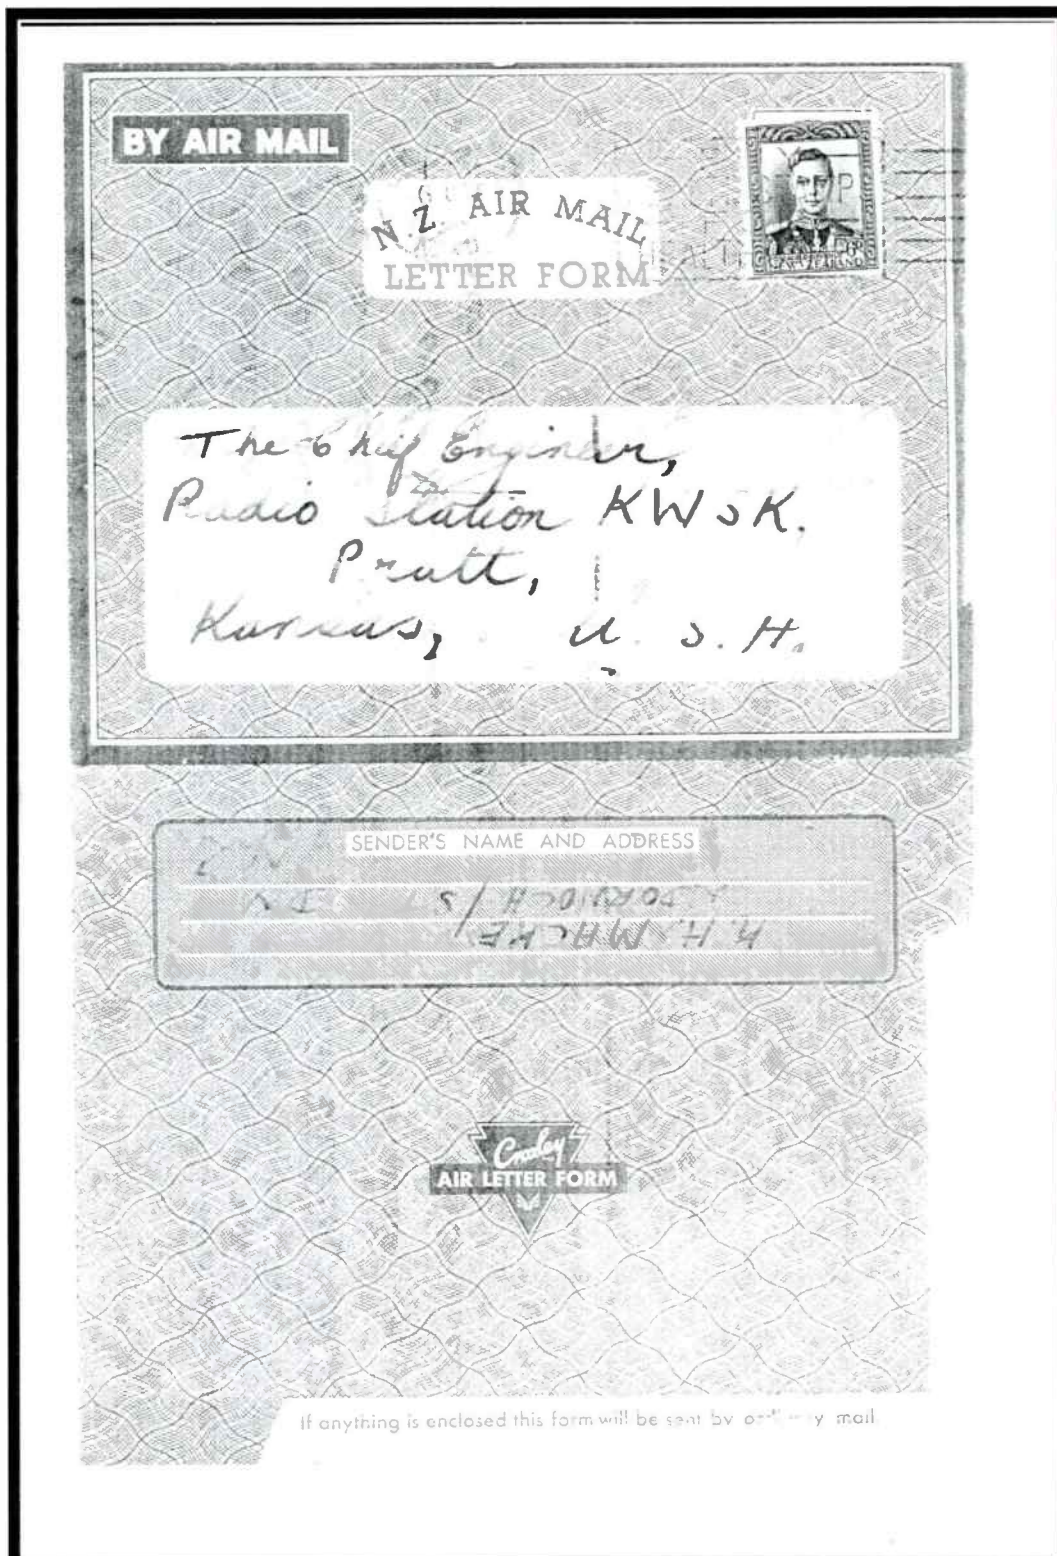 BY AIR MAIL
N.Z. AIR MAIL
LETTER FORM
The Chief Engineer,
Radio Station KWSK.
Pratt,
Kansas, U.S.A.
SENDER'S NAME AND ADDRESS
AIR LETTER FORM
If anything is enclosed this form will be sent by ordinary mail